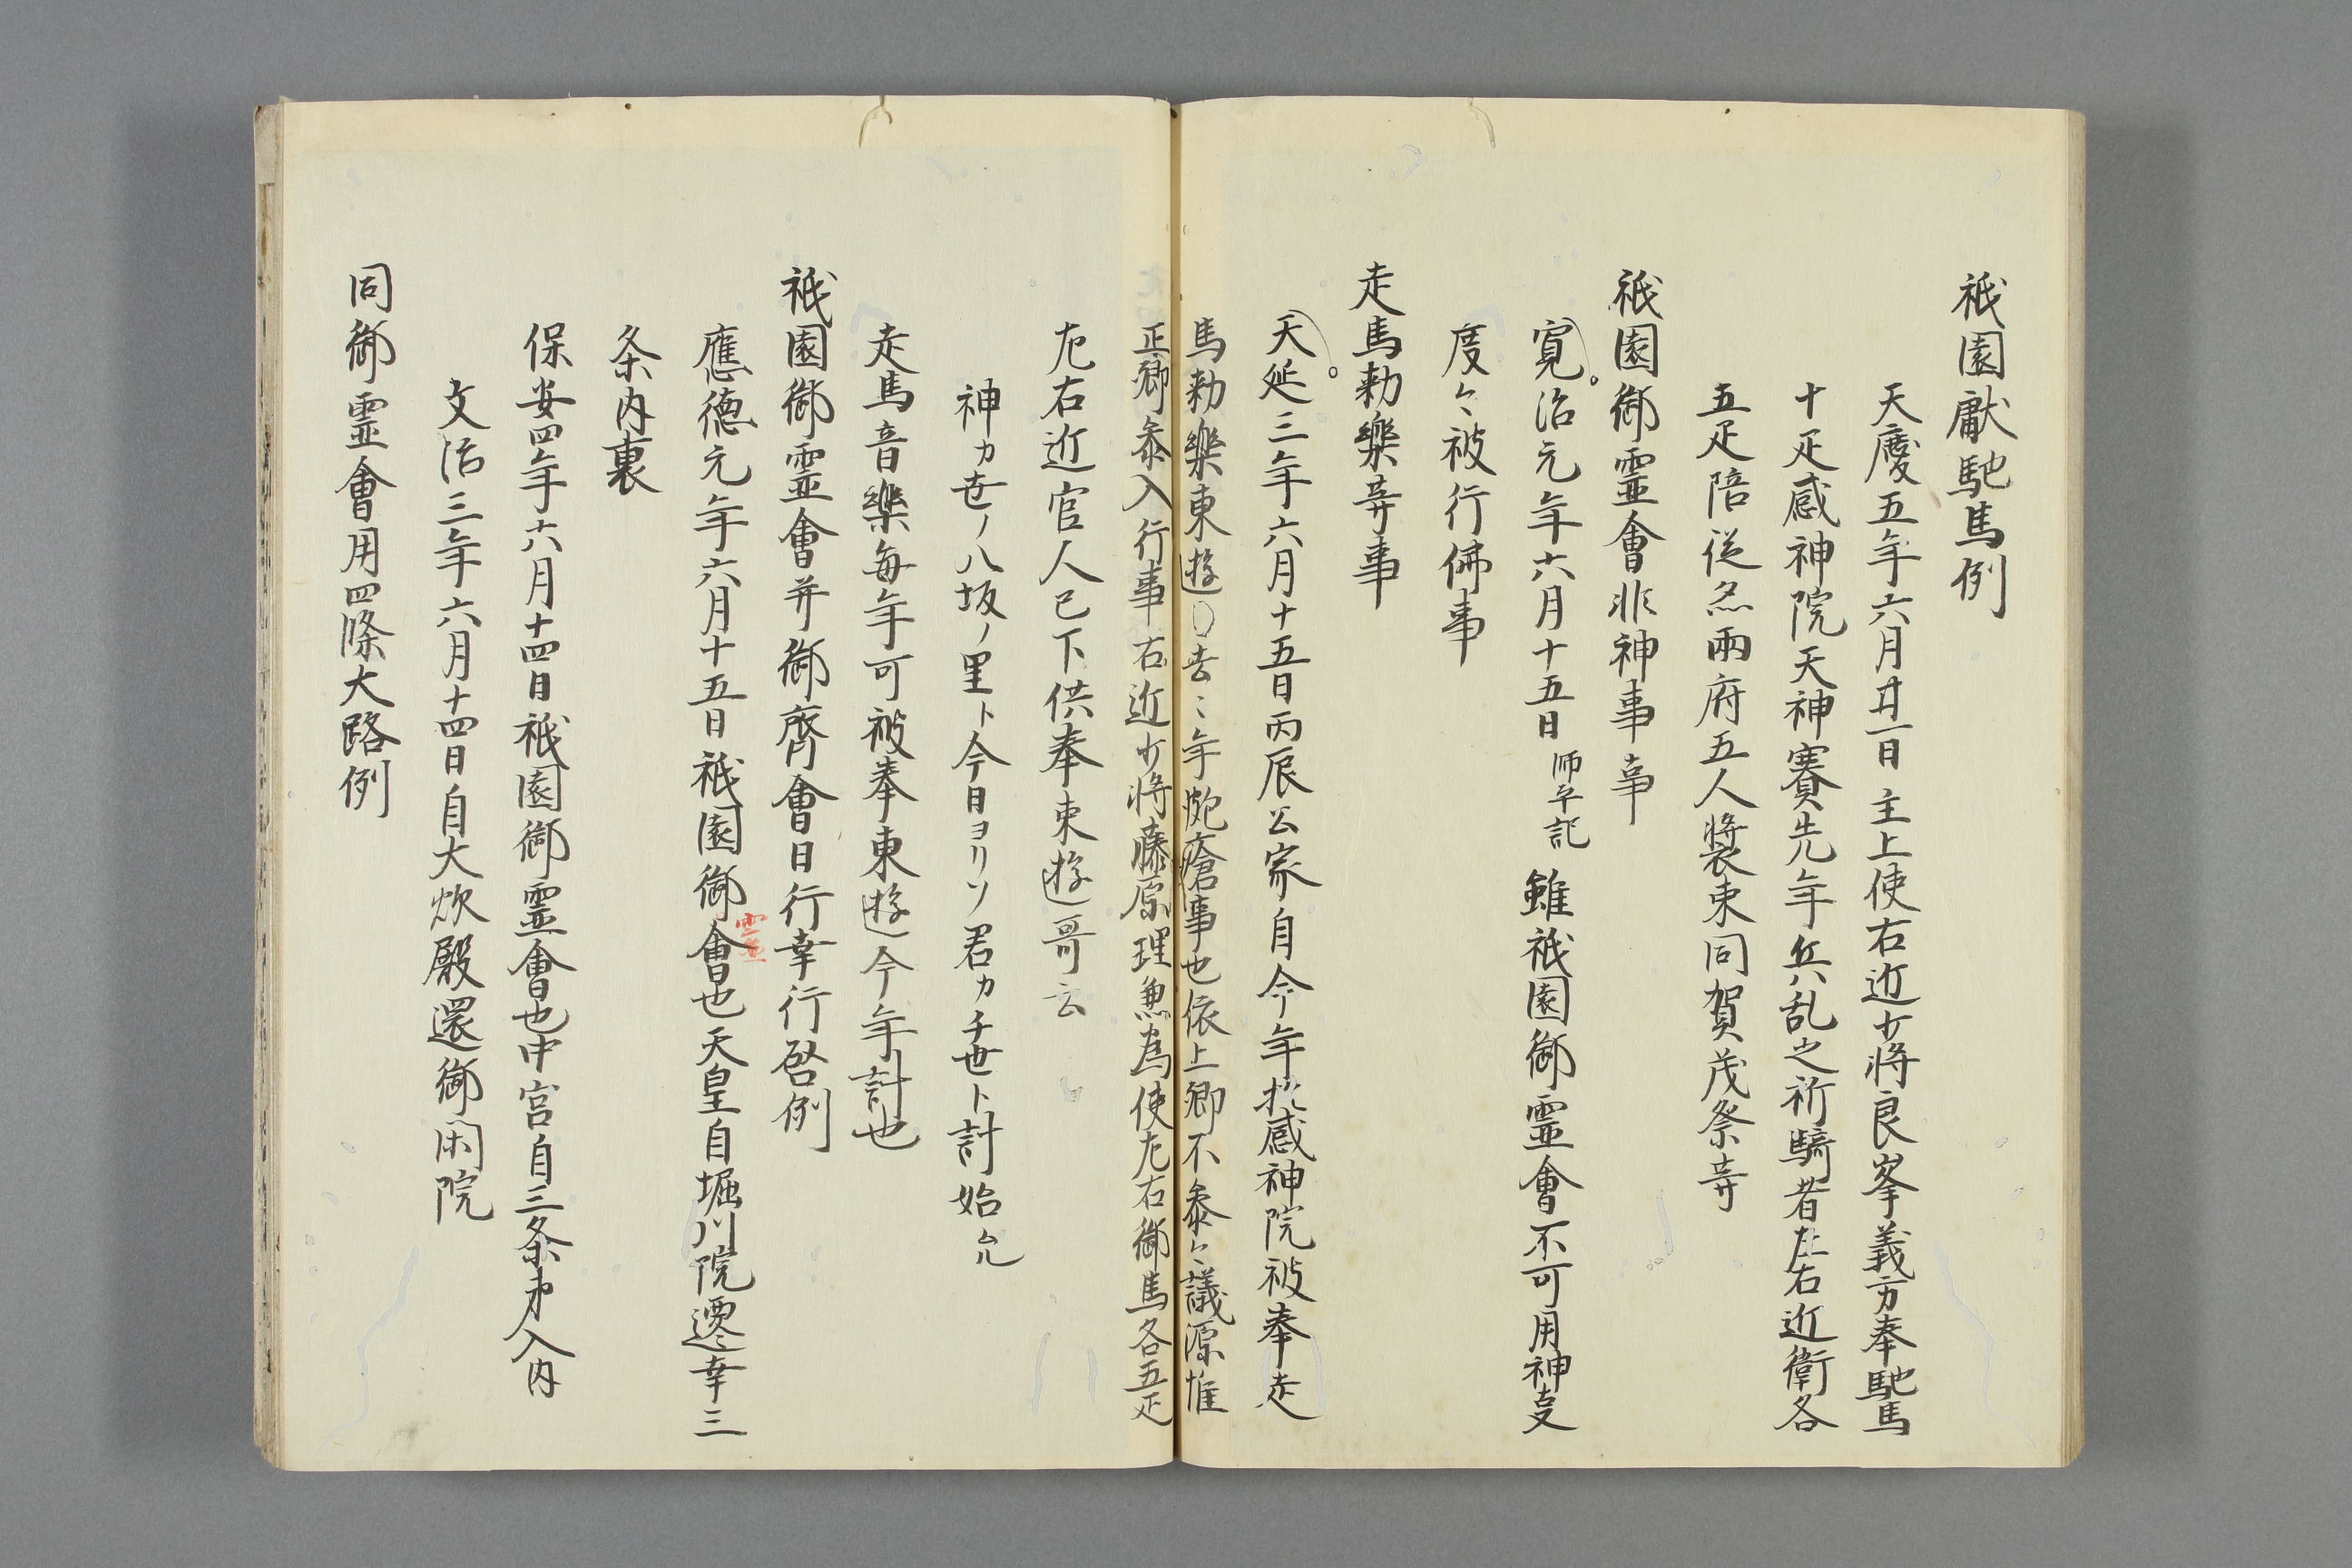 祇園獻馳馬例
天慶五年六月廿一日主上使右近少將良峯義方奉馳馬
十疋感神院天神賽先年兵乱之祈騎者左右近衛各
五疋陪従㒵兩府五人裝束同賀茂祭䓁
祇園御霊會非神事事
寛治元年六月十五日師平記雖祇園御霊會不可用神叓
度々被行佛事
走馬勅樂䓁事
天延三年六月十五日丙辰公家自今年於感神院被奉走
馬勅樂東遊○去〻年皰瘡事也依上卿不叅々議源惟
正卿叅入行事右近少將藤原理兼為使左右御馬各五疋
左右近官人已下供奉東遊哥云
神カ世ノ八坂ノ里ト今日ヨリソ君カ千世ト計始允
走馬音樂毎年可被奉東遊今年計也
祇園御霊會并御齊會日行幸行啓例
應徳元年六月十五日祇園御霊會也天皇自堀川院遷幸三
条内裏
保安四年六月十四日祇園御霊會也中宮自三条第入内
文治三年六月十四日自大炊殿還御閑院
同御霊會用四條大路例